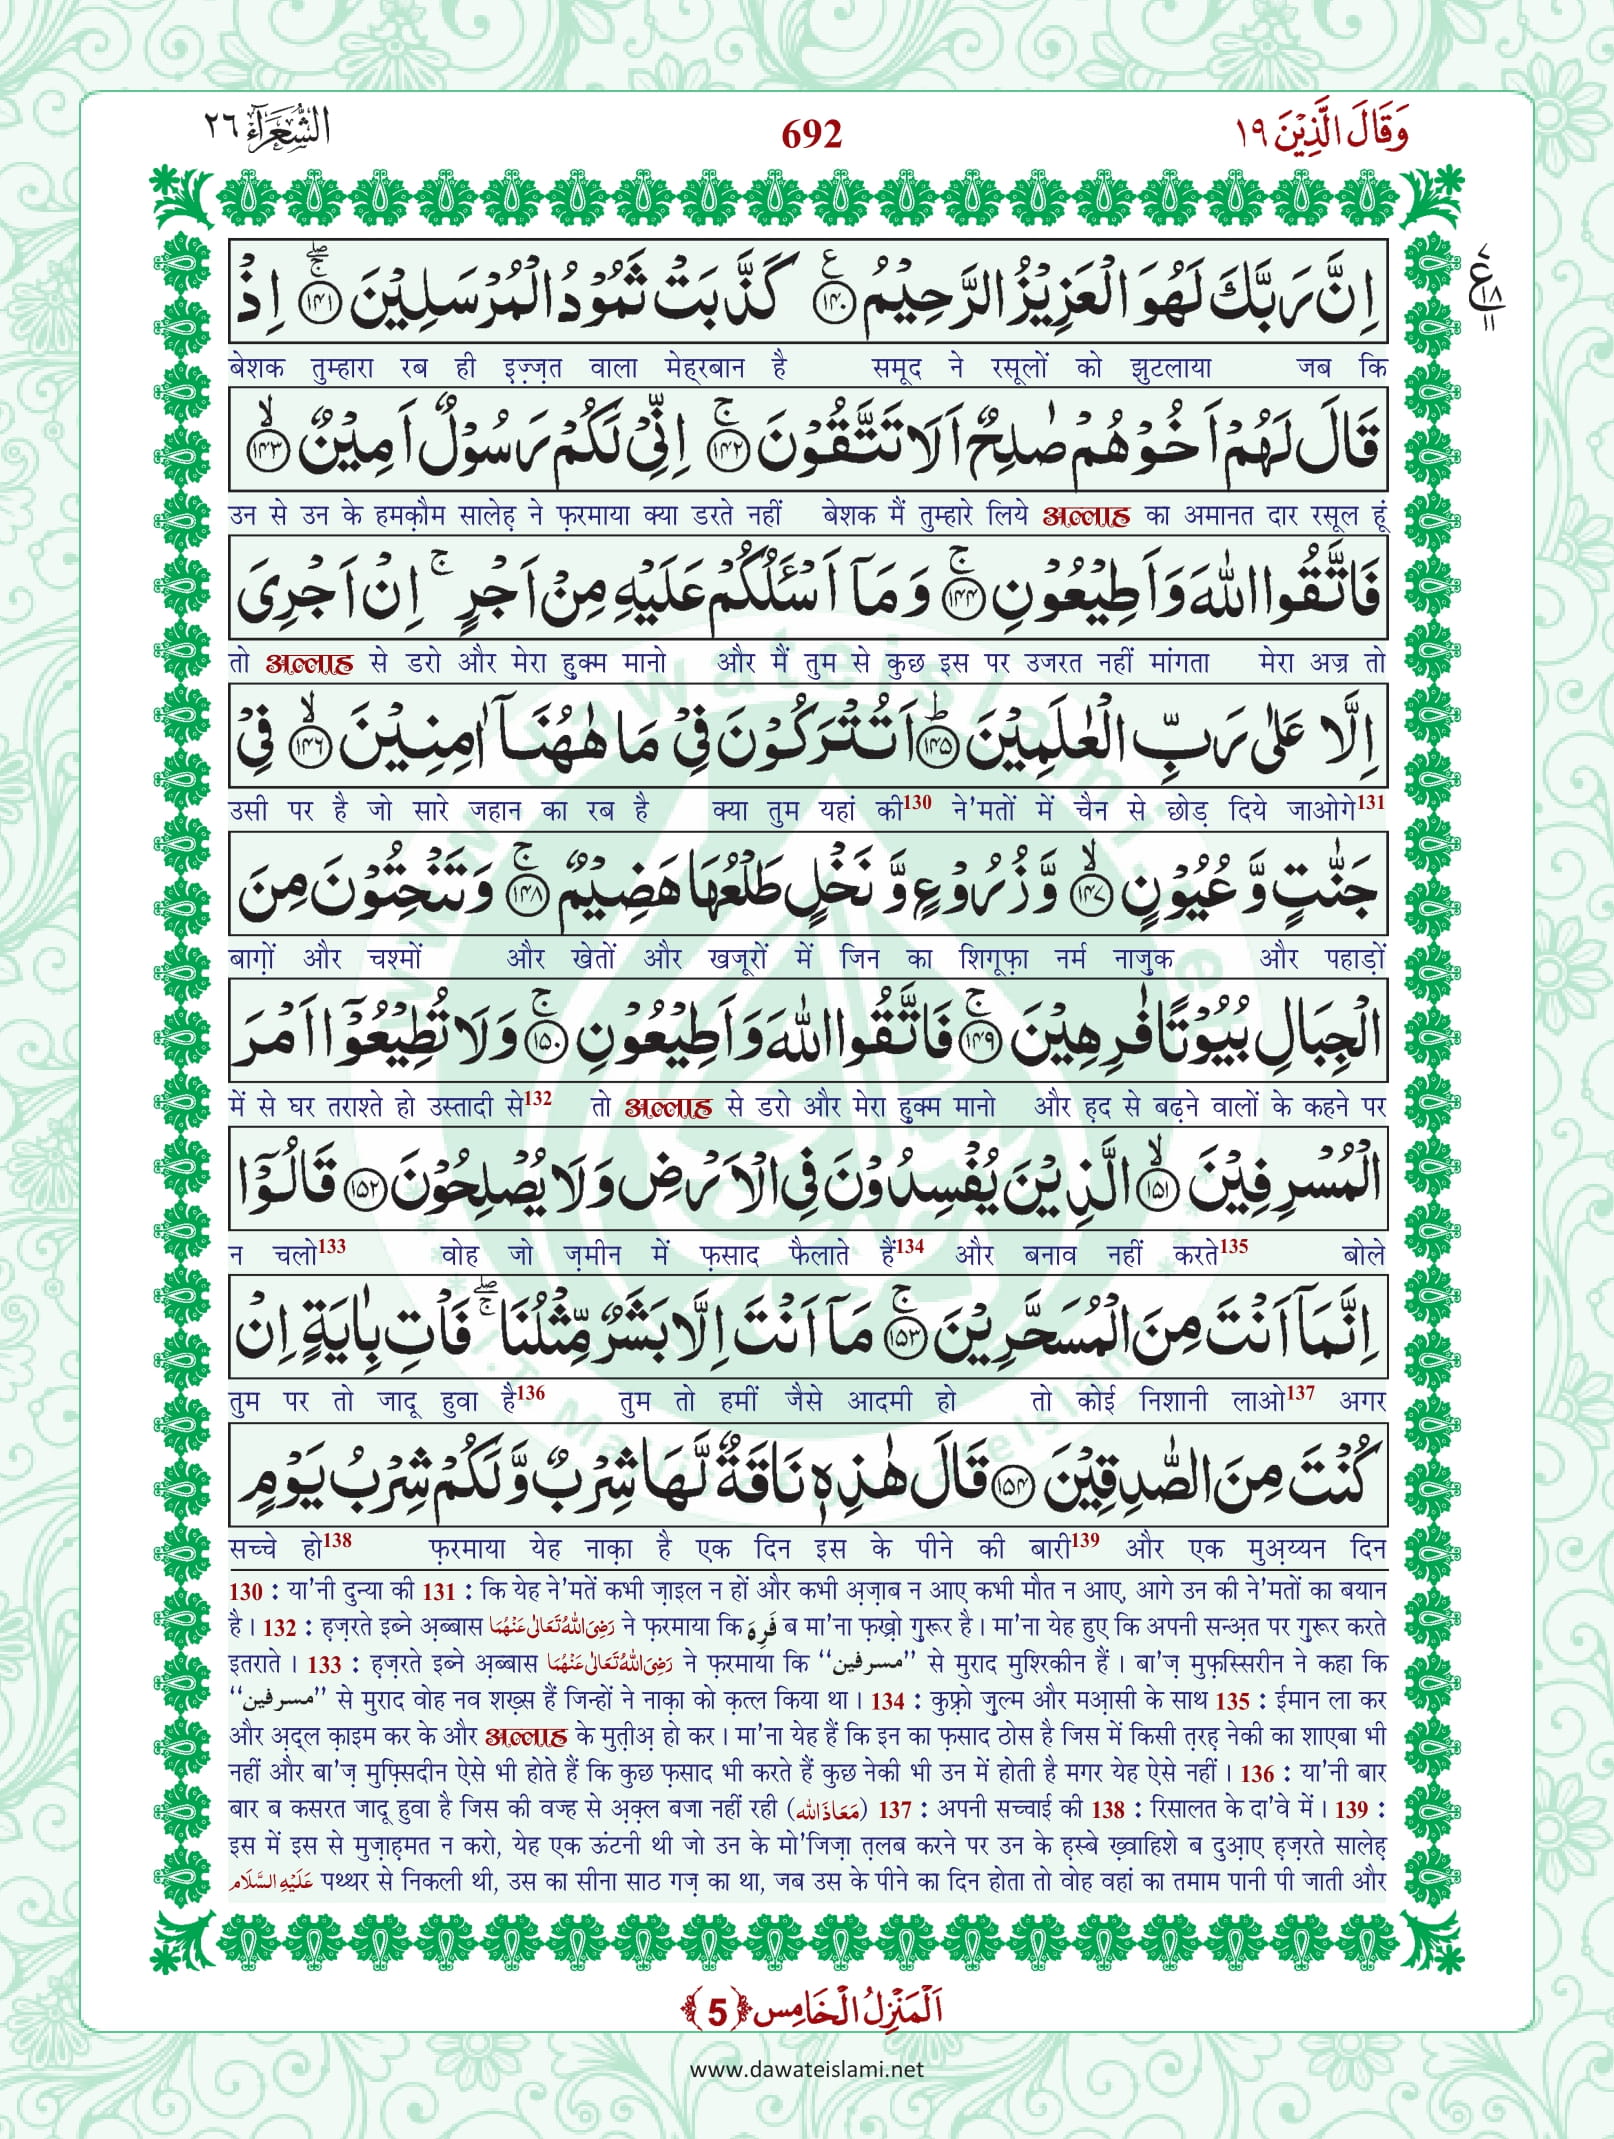 وَقَالَ الَّذِیْنَ ١٩ 692 الشُّعَرَآء ٢٦
اِنَّ رَبَّكَ لَهُوَ الْعَزِیْزُ الرَّحِیْمُ ﴿۱۴۰﴾ ع كَذَّبَتْ ثَمُوْدُ الْمُرْسَلِیْنَ ﴿۱۴۱﴾ اِذْ
ع ١٨ ١١
बेशक तुम्हारा रब ही इ़ज़्ज़त वाला मेह्‌रबान है समूद ने रसूलों को झुटलाया जब कि
قَالَ لَهُمْ اَخُوْهُمْ صٰلِحٌ اَلَا تَتَّقُوْنَ ﴿۱۴۲﴾ ج اِنِّیْ لَكُمْ رَسُوْلٌ اَمِیْنٌ ﴿۱۴۳﴾ لا
उन से उन के हमक़ौम सालेह़ ने फ़रमाया क्या डरते नहीं बेशक मैं तुम्हारे लिये अल्लाह का अमानत दार रसूल हूं
فَاتَّقُوا اللّٰهَ وَ اَطِیْعُوْنِ ﴿۱۴۴﴾ ج وَ مَاۤ اَسْـَٔلُكُمْ عَلَیْهِ مِنْ اَجْرٍ ۚ اِنْ اَجْرِیَ
तो अल्लाह से डरो और मेरा हुक्म मानो और मैं तुम से कुछ इस पर उजरत नहीं मांगता मेरा अज्र तो
اِلَّا عَلٰى رَبِّ الْعٰلَمِیْنَ ﴿۱۴۵﴾ ط اَتُتْرَكُوْنَ فِیْ مَا هٰهُنَاۤ اٰمِنِیْنَ ﴿۱۴۶﴾ لا فِیْ
उसी पर है जो सारे जहान का रब है क्या तुम यहां की130 ने'मतों में चैन से छोड़ दिये जाओगे131
جَنّٰتٍ وَّ عُیُوْنٍ ﴿۱۴۷﴾ لا وَّ زُرُوْعٍ وَّ نَخْلٍ طَلْعُهَا هَضِیْمٌ ﴿۱۴۸﴾ ج وَ تَنْحِتُوْنَ مِنَ
बाग़ों और चश्मों और खेतों और खजूरों में जिन का शिगूफ़ा नर्म नाजुक और पहाड़ों
الْجِبَالِ بُیُوْتًا فٰرِهِیْنَ ﴿۱۴۹﴾ ج فَاتَّقُوا اللّٰهَ وَ اَطِیْعُوْنِ ﴿۱۵۰﴾ ج وَ لَا تُطِیْعُوْۤا اَمْرَ
में से घर तराश्ते हो उस्तादी से132 तो अल्लाह से डरो और मेरा हुक्म मानो और ह़द से बढ़ने वालों के कहने पर
الْمُسْرِفِیْنَ ﴿۱۵۱﴾ لا الَّذِیْنَ یُفْسِدُوْنَ فِی الْاَرْضِ وَ لَا یُصْلِحُوْنَ ﴿۱۵۲﴾ قَالُوْۤا
न चलो133 वोह जो ज़मीन में फ़साद फैलाते हैं134 और बनाव नहीं करते135 बोले
اِنَّمَاۤ اَنْتَ مِنَ الْمُسَحَّرِیْنَ ﴿۱۵۳﴾ ج مَاۤ اَنْتَ اِلَّا بَشَرٌ مِّثْلُنَا ۚۖ فَاْتِ بِاٰیَةٍ اِنْ
तुम पर तो जादू हुवा है136 तुम तो हमीं जैसे आदमी हो तो कोई निशानी लाओ137 अगर
كُنْتَ مِنَ الصّٰدِقِیْنَ ﴿۱۵۴﴾ قَالَ هٰذِهٖ نَاقَةٌ لَّهَا شِرْبٌ وَّ لَكُمْ شِرْبُ یَوْمٍ
सच्चे हो138 फ़रमाया येह नाक़ा है एक दिन इस के पीने की बारी139 और एक मुअ़य्यन दिन
130 : या'नी दुन्या की 131 : कि येह ने'मतें कभी ज़ाइल न हों और कभी अ़ज़ाब न आए कभी मौत न आए, आगे उन की ने'मतों का बयान
है। 132 : ह़ज़रते इब्ने अ़ब्बास رَضِیَ اللّٰهُ تَعَالٰی عَنْهُمَا ने फ़रमाया कि فَرِهٌ ब मा'ना फ़ख़्रो गुरूर है। मा'ना येह हुए कि अपनी सन्अ़त पर गुरूर करते
इतराते। 133 : ह़ज़रते इब्ने अ़ब्बास رَضِیَ اللّٰهُ تَعَالٰی عَنْهُمَا ने फ़रमाया कि “مسرفین” से मुराद मुश्रिकीन हैं। बा'ज़ मुफ़स्सिरीन ने कहा कि
“مسرفین” से मुराद वोह नव शख़्स हैं जिन्हों ने नाक़ा को क़त्ल किया था। 134 : कुफ़्रो ज़ुल्म और मआ़सी के साथ 135 : ईमान ला कर
और अ़द्ल क़ाइम कर के और अल्लाह के मुत़ीअ़ हो कर। मा'ना येह हैं कि इन का फ़साद ठोस है जिस में किसी त़रह़ नेकी का शाएबा भी
नहीं और बा'ज़ मुफ़्सिदीन ऐसे भी होते हैं कि कुछ फ़साद भी करते हैं कुछ नेकी भी उन में होती है मगर येह ऐसे नहीं। 136 : या'नी बार
बार ब कसरत जादू हुवा है जिस की वज्ह से अ़क़्ल बजा नहीं रही (مَعَاذَ اللّٰه) 137 : अपनी सच्चाई की 138 : रिसालत के दा'वे में। 139 :
इस में इस से मुज़ाह़मत न करो, येह एक ऊंटनी थी जो उन के मो'जिज़ा त़लब करने पर उन के ह़स्बे ख़्वाहिशे ब दुआ़ए ह़ज़रते सालेह़
عَلَیْهِ السَّلَام पथ्थर से निकली थी, उस का सीना साठ गज़ का था, जब उस के पीने का दिन होता तो वोह वहां का तमाम पानी पी जाती और
اَلْمَنْزِلُ الْخَامِس ﴿5﴾
www.dawateislami.net